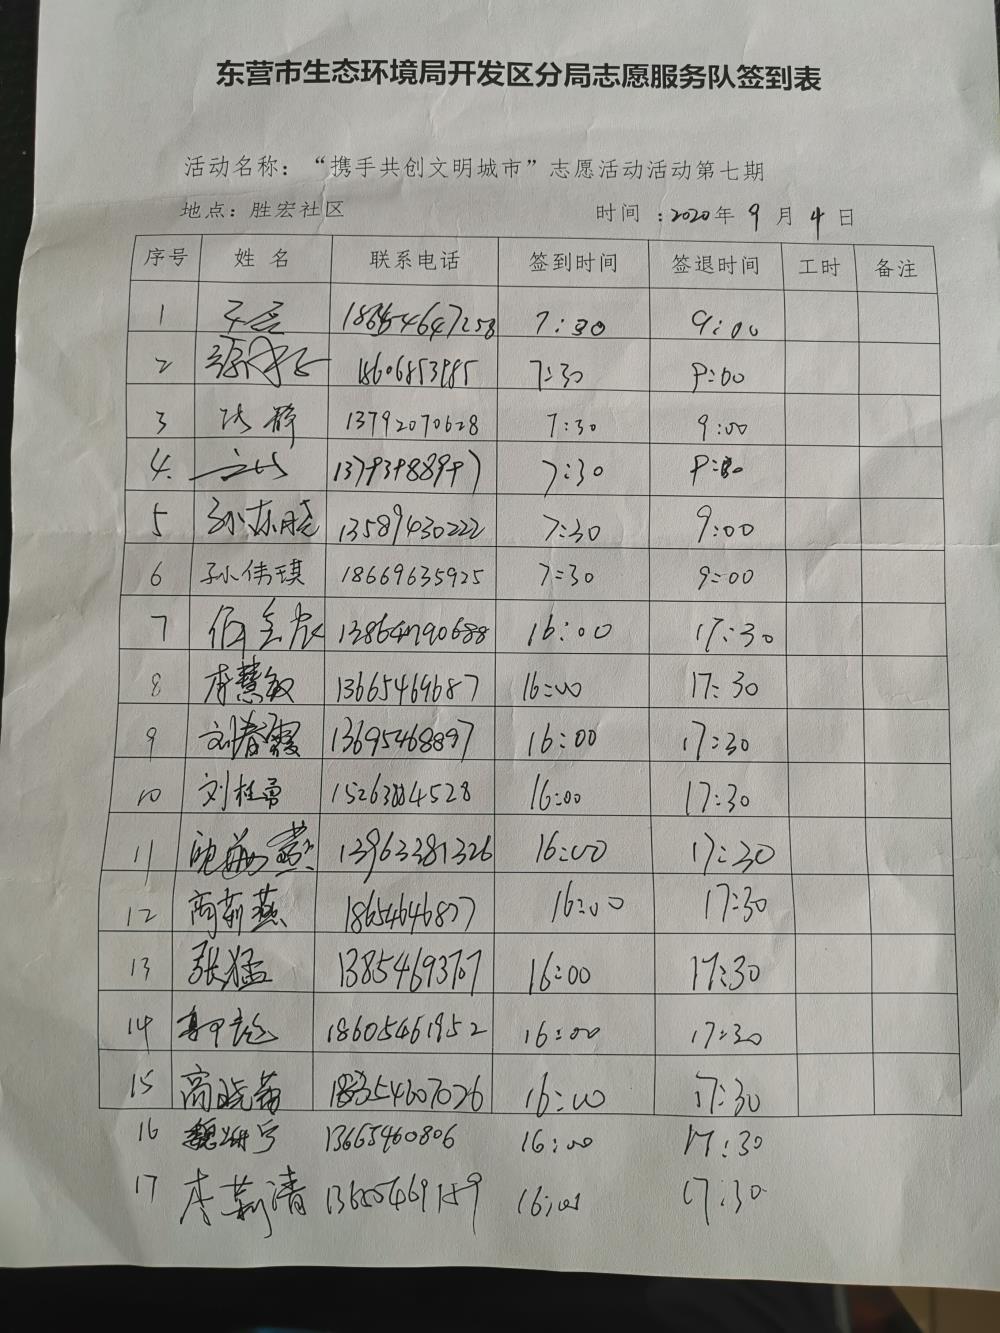 东营市生态环境局开发区分局志愿服务队签到表
活动名称：“携手共创文明城市”志愿活动活动第七期
地点：胜宏社区 时间：2020年9月4日
序号 姓名 联系电话 签到时间 签退时间 工时 备注
1 18654647258 7:30 9:00
2 18606853985 7:30 9:00
3 张静 13792070628 7:30 9:00
4. 7:30 9:30
5 孙东晓 13589430222 7:30 9:00
6 孙伟琪 18669635925 7:30 9:00
7 16:00 17:30
8 李慧敏 13665469687 16:00 17:30
9 刘春霞 13695468897 16:00 17:30
10 刘桂勇 16:00 17:30
11 13963381326 16:00 17:30
12 商莉燕 18654646807 16:00 17:30
13 张猛 13854693707 16:00 17:30
14 18605461952 16:00 17:30
15 高晓菊 18354607026 16:00 17:30
16 13665460806 16:00 17:30
17 李莉清 16:00 17:30